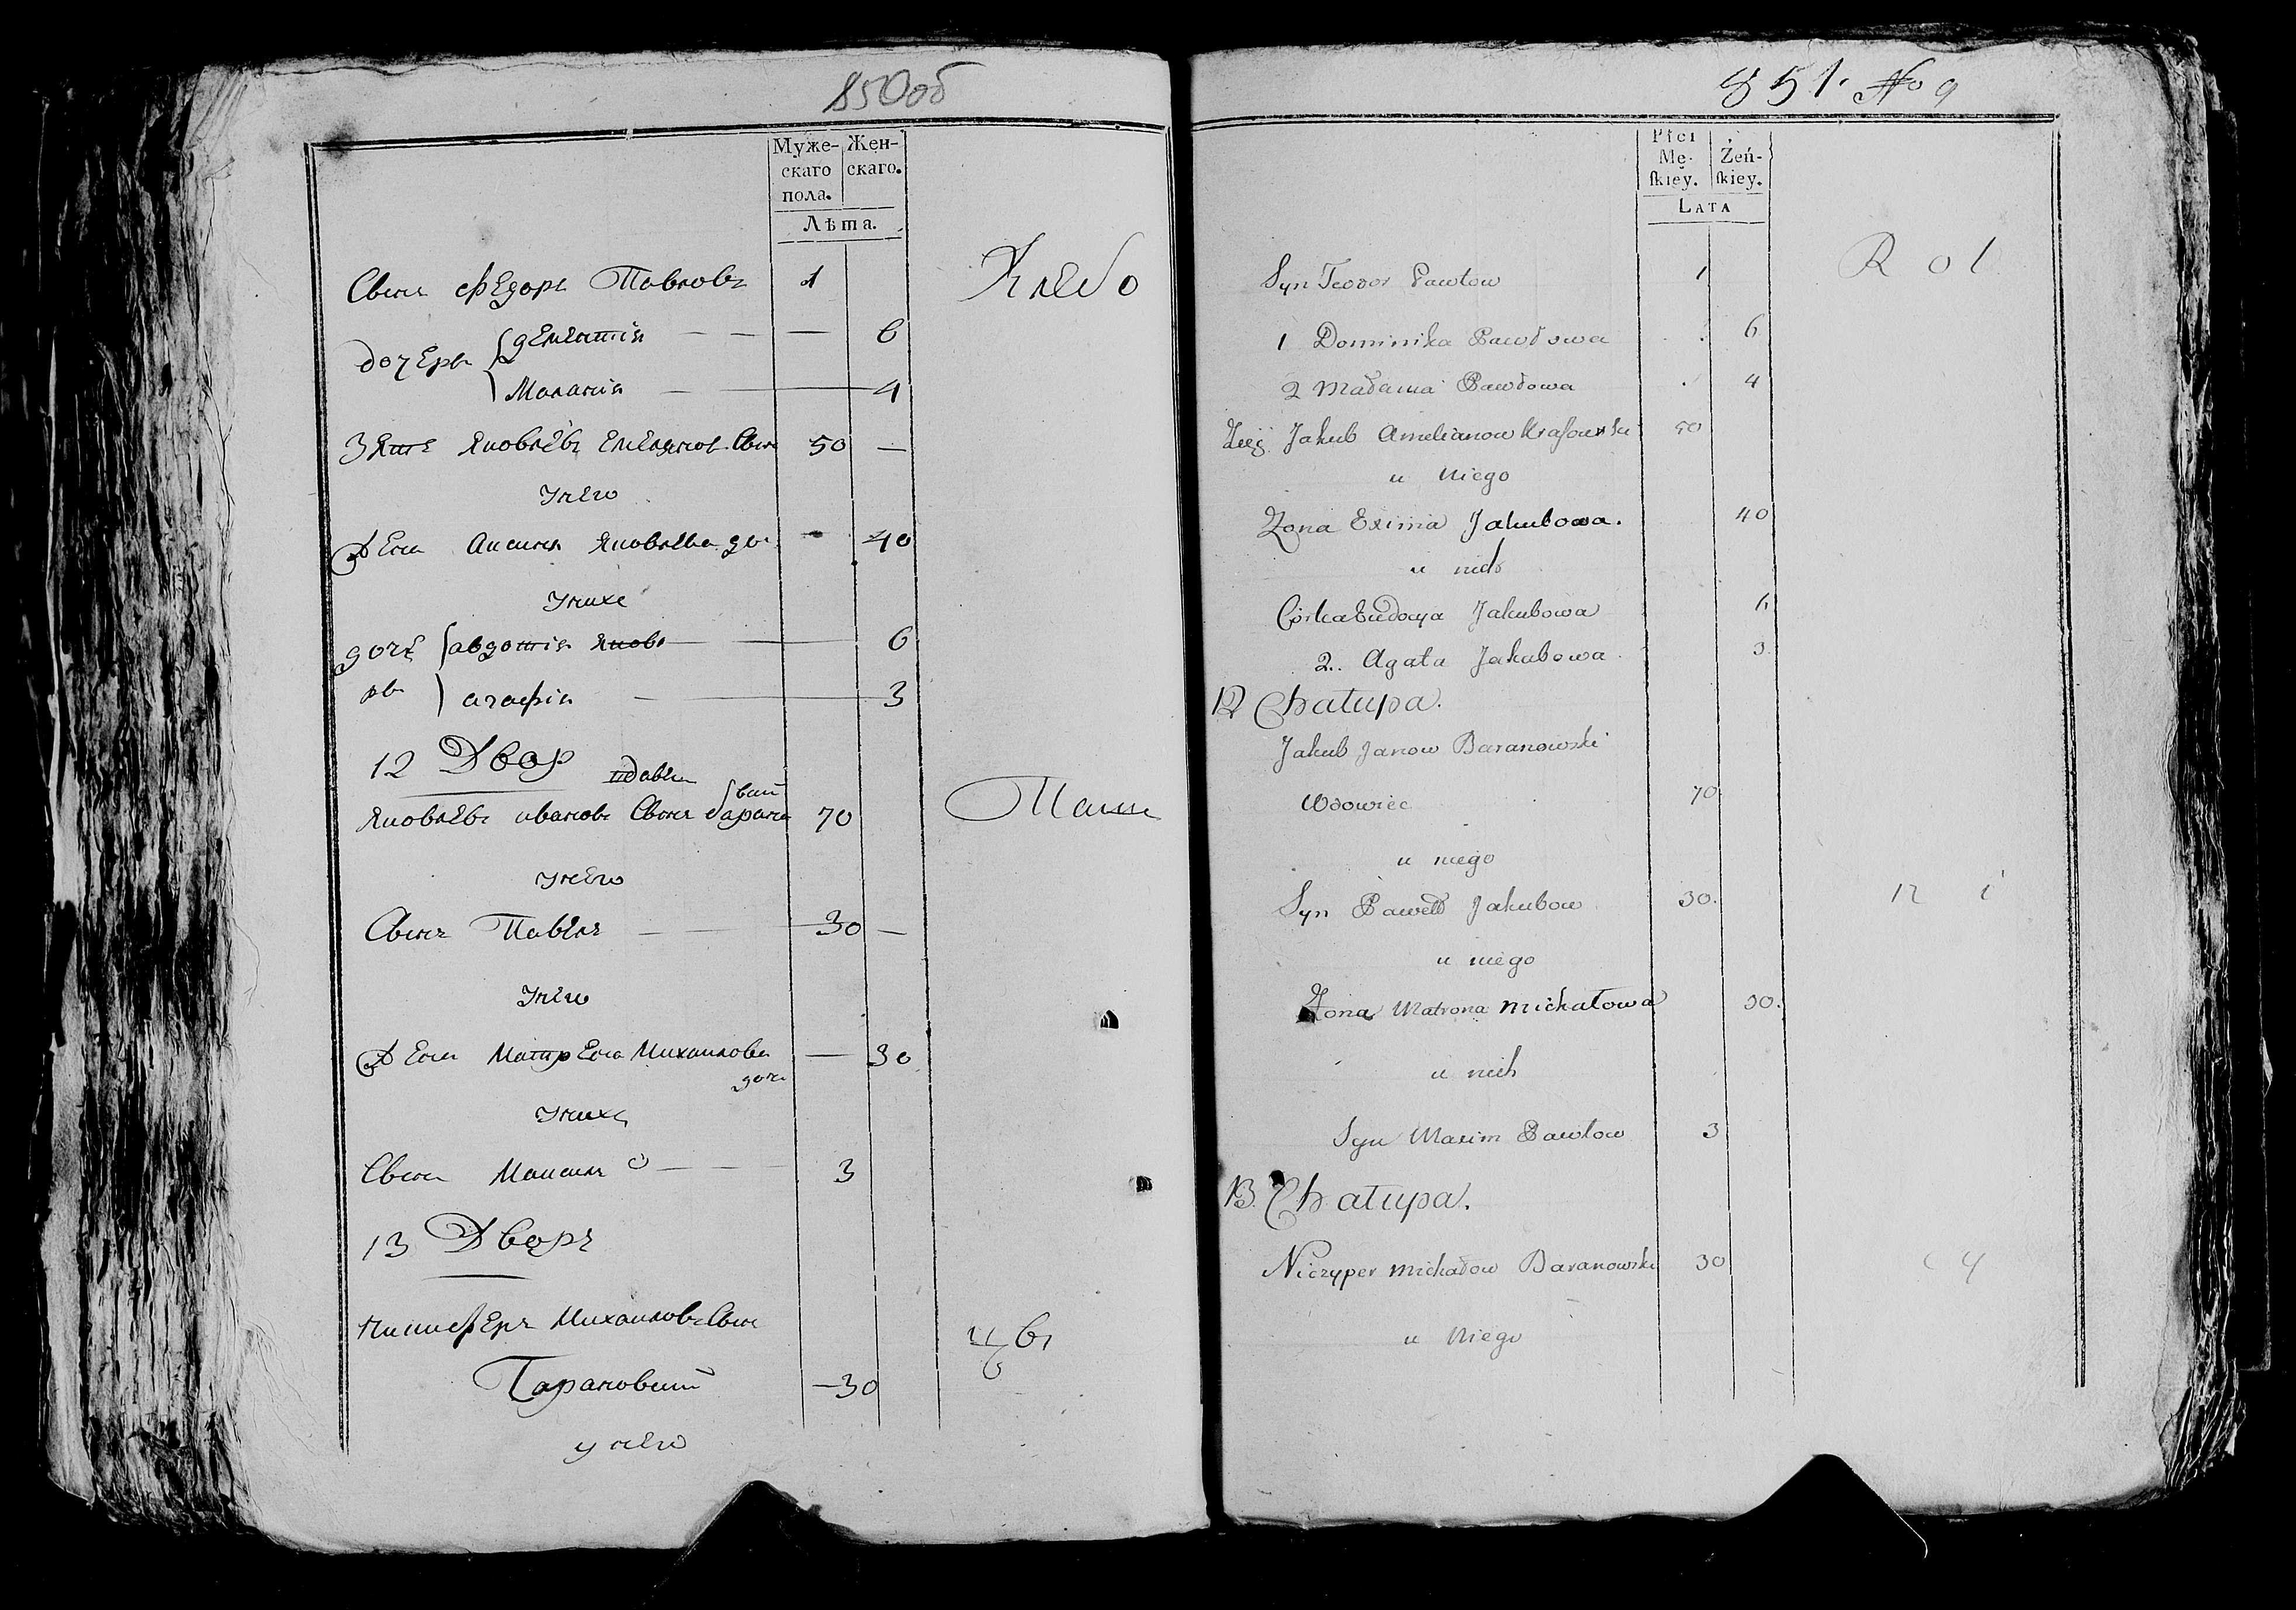 850об
Муже-
скаго
пола.
Жен-
скаго.
Лѣта.
Сынъ Федоръ Павловъ 1
Хлебо
дочери
6
Маланія 4
Зять Яковлевъ Емельянов Сынъ 50 —
У него
Жена Аксинья Яковлева до: 40
У нихъ
доче
ри
авдотія Яков 6
агафія 3
12 Двор
вдовец
Яковлевъ ивановъ Сынъ барано
вский 70
Паш
у него
Сынъ Павелъ 30 —
У него
Жена Матрена Михаилова
дочь — 30
У нихъ
Сынъ Максимъ 3
13 Дворъ
Никиферъ Михаиловъ Сынъ
Барановский 30
цы
у него
851. No 9
Płci
Mę-
ſkiey.
Żeń-
ſkiey.
LATA
Syn Teodor Pawłow 1
Rol
1 Dominika Pawłowa 6
2 Małania Pawłowa 4
Zięć Jakub Amelianow Krasowski 50
u Niego
Zona Eximia Jakubowa. 40
u nich
Córka Eudocya Jakubowa 6
2. Agata Jakubowa 3
12 Chałupa.
Jakub Janow Baranowski
Wdowiec 70
u niego
Syn Paweł Jakubow 30.
n i
u niego
Zona Matrona Michałowa 30.
u nich
Syn Maxim Pawłow 3
13. Chałupa.
Niczyper Michałow Baranowski 30
c y
u Niego